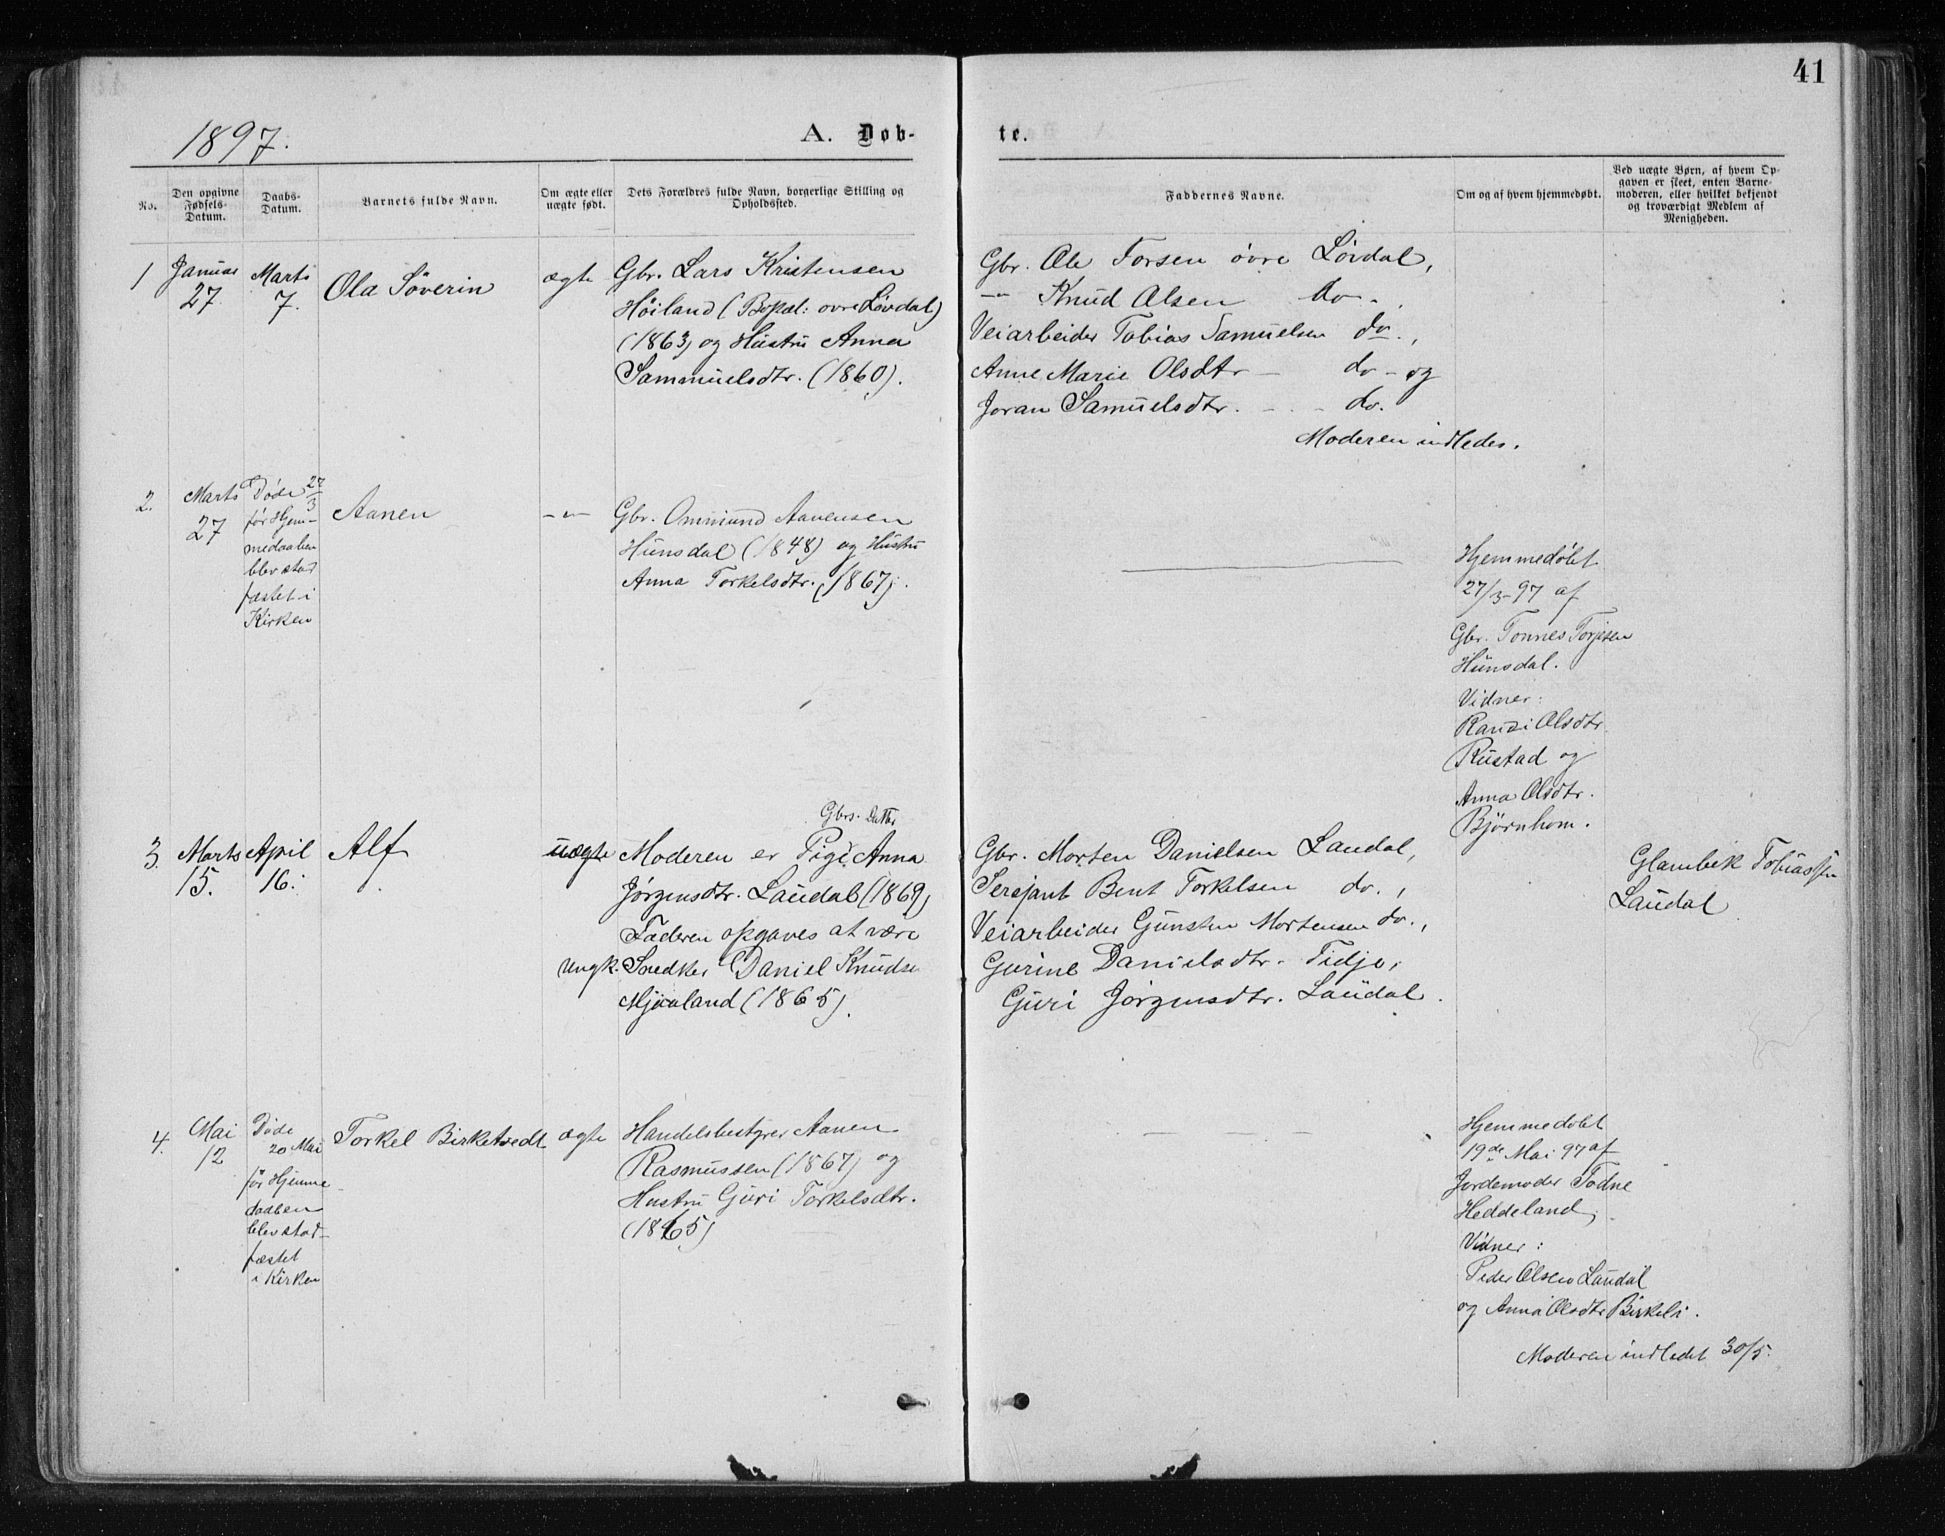 41
1897.
A. Døb-
te.
No.
Den opgivne
Fødsels-
Datum.
Daabs-
Datum.
Barnets fulde Navn.
Om ægte eller
uægte født.
Dets Forældres fulde Navn, borgerlige Stilling og
Opholdssted.
Faddernes Navne.
Om og af hvem hjemmedøbt.
Ved uægte Børn, af hvem Op-
gaven er skeet, enten Barne-
moderen, eller hvilket bekjendt
og troværdigt Medlem af
Menigheden.
1
Januar
27
Marts
7.
Ola Söverin
ægte
Gbr. Lars Kristensen
Höiland (Bopæl: øvre Løvdal)
(1863) og Hustru Anna
Sammuelsdtr. (1860).
Gbr. Ole Torsen övre Lövdal,
-"- Knud Olsen do-,
Veiarbeider Tobias Samuelsen do.,
Anne Marie Olsdtr - do - og
Joran Samuelsdtr. - - - do.
Moderen indledes.
2.
Marts
27
Døde 27/3
før Hjem-
medaaben
blev stad
fæstet i
Kirken
Aanen
-"-
Gbr. Ommund Aanensen
Hunsdal (1848) og Hustru
Anna Torkelsdtr. (1867).
Hjemmedøbt
27/3-97 af
Gbr. Tønnes Torjesen
Hunsdal.
Vidner:
Olsdtr.
Rustad og
Anna Olsdtr.
Bjørnhom.
3.
Marts
15.
April
16.
Alf
uægte
Gbrs. Datter
Moderen er Pige Anna
Jørgensdtr. Laudal (1869)
Faderen opgaves at være
Ungk. Snedker Daniel Knudse
Mjaaland (1865).
Gbr. Morten Danielsen Laudal,
Sersjant Bent Torkelsen do.,
Veiarbeider Gunsten Mortensen do.,
Gurine Danielsdtr. Tidje,
Guri Jørgensdtr. Laudal.
Glambek Tobiassen
Laudal
4.
Mai
12
Døde
20 Mai
før Hjemme
daaben
blev stad-
fæstet
i Kirken
Torkel Birketvedt
ægte
Handelsbestyrer Aanen
Rasmussen (1867) og
Hustru Guri Torkelsdtr.
(1865)
Hjemmedøbt
19de Mai 97 af
Jordemoder Todne
Heddeland,
Vidner:
Peder Olsen Laudal
og Anna Olsdtr Birkeli.
Moderen indledet 30/5.